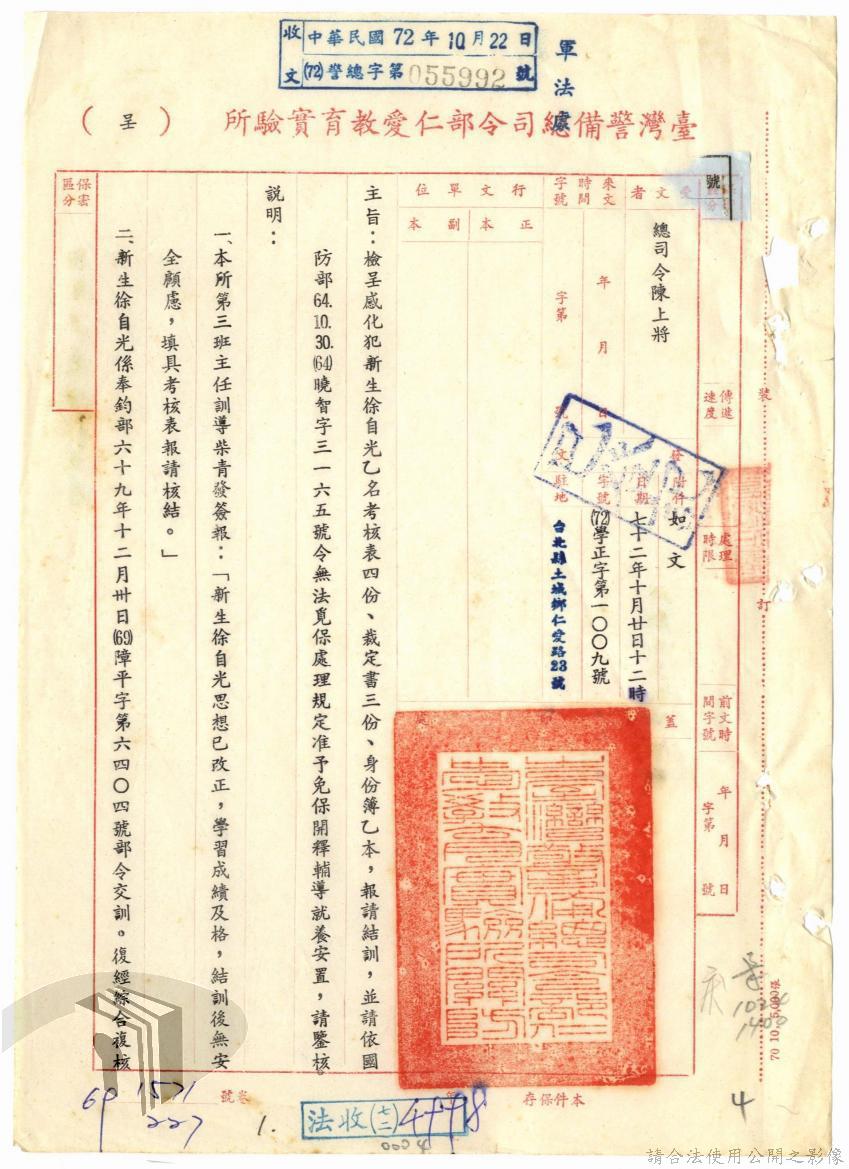 收文
中華民國72年10月22日
(72)警總字第055992號
軍法處
臺灣警備總司令部仁愛教育實驗所
(呈)
保密區分
傳遞速度
處理時限
前文時間字號
年月日
字第 號
受文者
總司令陳上將
號
附件
如文
發文
日期
七十二年十月廿日十二時
字號
(72)學正字第一〇〇九號
駐地
台北縣土城鄉仁愛路23號
來文
時間
年月日
字號
字第 號
行文單位
正本
副本
蓋
主旨：檢呈感化犯新生徐自光乙名考核表四份、裁定書三份、身份簿乙本，報請結訓，並請依國
防部64.10.30.(64)曉智字三一六五號令無法覓保處理規定准予免保開釋輔導就養安置，請鑒核。
說明：
一、本所第三班主任訓導柴青發簽報：「新生徐自光思想已改正，學習成績及格，結訓後無安
全顧慮，填具考核表報請核結。」
二、新生徐自光係奉鈞部六十九年十二月卅日(69)障平字第六四〇四號部令交訓。復經綜合複核
裝
訂
本件保存
年
卷號
69 1571
227
1.
法收(七二)4498
0004
4
請合法使用公開之影像